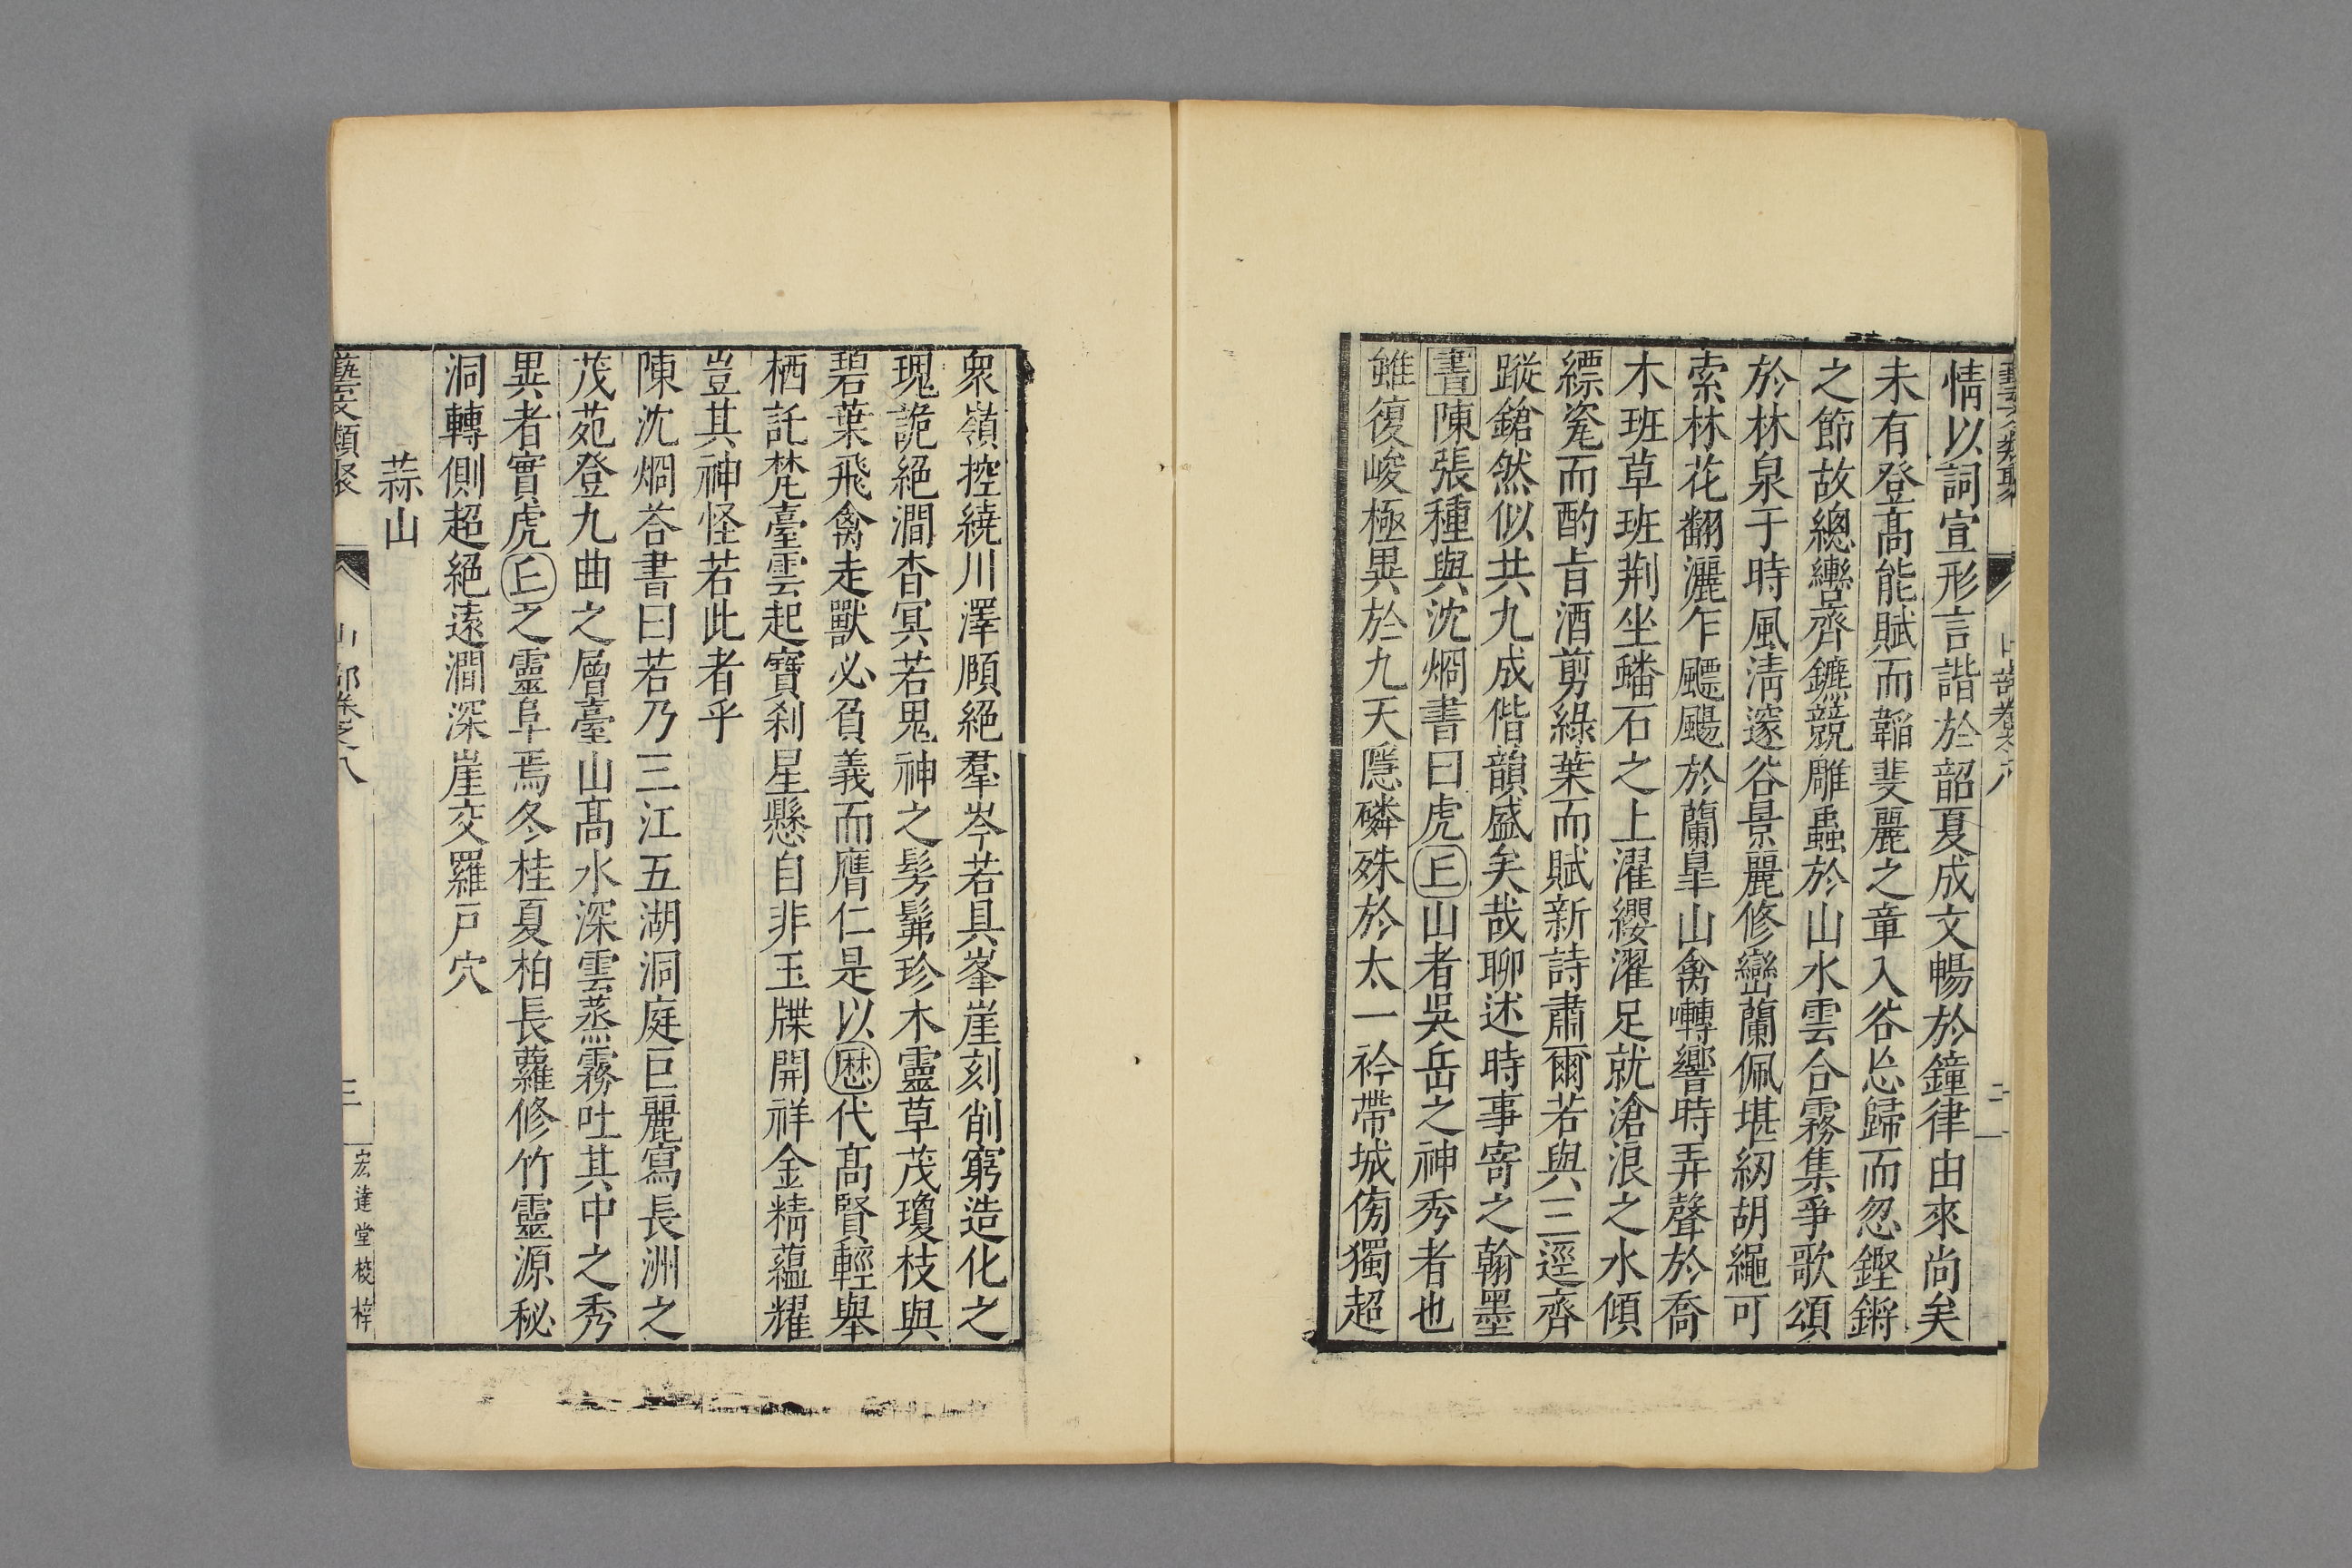 情以詞宣形言諧於韶夏成文暢於鐘律由來尚矣
未有登髙能賦而韜斐麗之章入谷忘歸而忽鏗鏘
之節故總轡齊鑣競雕蟲於山水雲合霧集爭歌頌
於林泉于時風清邃谷景麗修巒蘭佩堪紉胡繩可
索林花翻灑乍飃颺於蘭臯山禽囀響時弄聲於喬
木班草班荆坐蟠石之上濯纓濯足就滄浪之水傾
縹瓷而酌㫖酒剪綠葉而賦新詩肅爾若與三逕齊
蹤鎗然似共九成偕韻盛矣哉聊述時事寄之翰墨
書陳張種與沈烱書曰虎丘山者吳岳之神秀者也
雖復峻極異於九天隱磷殊於太一衿帶城傍獨超
衆嶺控繞川澤頋絕羣岑若具峯崖刻削窮造化之
瑰詭絕澗杳冥若鬼神之髣髴珍木靈草茂瓊枝與
碧葉飛禽走獸必負義而膺仁是以歴代髙賢輕舉
栖託梵臺雲起寶刹星懸自非玉牒開祥金精蘊耀
豈其神怪若此者乎
陳沈烱荅書曰若乃三江五湖洞庭巨麗寫長洲之
茂苑登九曲之層臺山髙水深雲蒸霧吐其中之秀
異者實虎丘之靈阜焉冬桂夏柏長蘿修竹靈源秘
洞轉側超絕遠澗深崖交羅戸穴
蒜山
藝文類聚 山部卷之八 三 宏達堂校梓